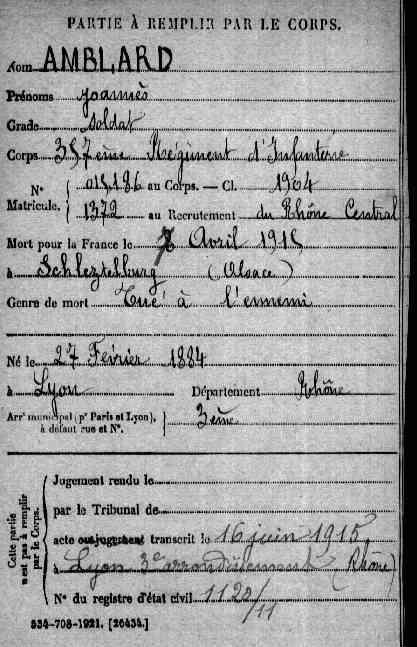 PARTIE À REMPLIR PAR LE CORPS.
Nom AMBLARD
Prénoms Joannès
Grade soldat
Corps 357ème Régiment d'Infanterie
N° Matricule. 015186 au Corps. — Cl. 1904
1372 au Recrutement du Rhône Central
Mort pour la France le Avril 1915
à Schleztelburg (Alsace)
Genre de mort Tué à l'ennemi
Né le 27 Février 1884
à Lyon Département Rhône
Arrt municipal (pr Paris et Lyon), à défaut rue et N°. 3eme
Cette partie n'est pas à remplir par le Corps.
Jugement rendu le
par le Tribunal de
acte ou jugement transcrit le 16 juin 1915
à Lyon 3e arrondissement (Rhône)
N° du registre d'état civil 1128/11
534-708-1921. [26434.]